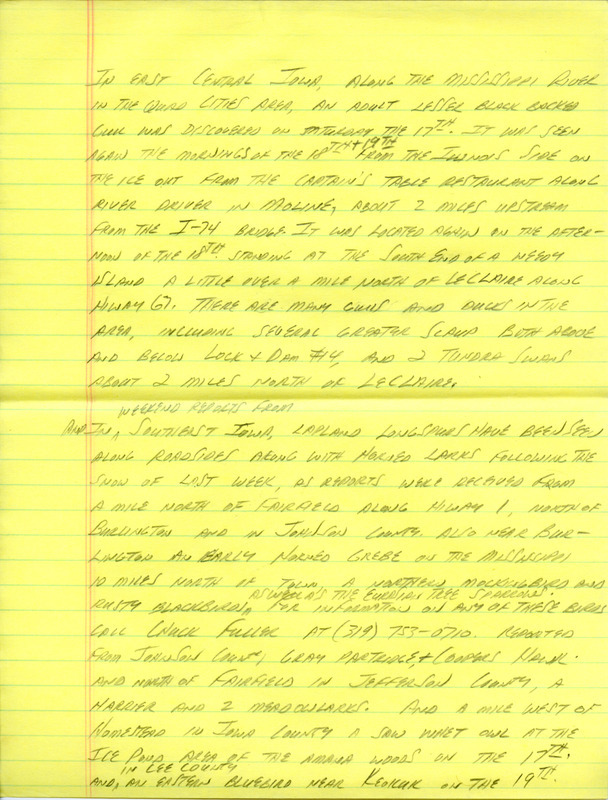 IN EAST CENTRAL IOWA, ALONG THE MISSISSIPPI RIVER
IN THE QUAD CITIES AREA, AN ADULT LESSER BLACK BACKED
GULL WAS DISCOVERED ON SATURDAY THE 17TH. IT WAS SEEN
AGAIN THE MORNINGS OF THE 18TH + 19TH FROM THE ILLINOIS SIDE ON
THE ICE OUT FROM THE CAPTAIN'S TABLE RESTAURANT ALONG
RIVER DRIVER IN MOLINE, ABOUT 2 MILES UPSTREAM
FROM THE I-74 BRIDGE. IT WAS LOCATED AGAIN ON THE AFTER-
NOON OF THE 18TH STANDING AT THE SOUTH END OF A WEEDY
ISLAND A LITTLE OVER A MILE NORTH OF LECLAIRE ALONG
HIWAY 67. THERE ARE MANY GULLS AND DUCKS IN THE
AREA, INCLUDING SEVERAL GREATER SCAUP BOTH ABOVE
AND BELOW LOCK + DAM #14, AND 2 TUNDRA SWANS
ABOUT 2 MILES NORTH OF LECLAIRE.
WEEKEND REPORTS FROM
AND IN, SOUTHEST IOWA, LAPLAND LONGSPURS HAVE BEEN SEEN
ALONG ROADSIDES ALONG WITH HORNED LARKS FOLLOWING THE
SNOW OF LAST WEEK, AS REPORTS WERE RECEIVED FROM
A MILE NORTH OF FAIRFIELD ALONG HIWAY 1, NORTH OF
BURLINGTON AND IN JOHNSON COUNTY. ALSO NEAR BUR-
LINGTON AN EARLY HORNED GREBE ON THE MISSISSIPPI
10 MILES NORTH OF TOWN, A NORTHERN MOCKINGBIRD AND
AS WELL AS THE EURASIAN TREE SPARROWS.
RUSTY BLACKBIRD, FOR INFORMATION ON ANY OF THESE BIRDS
CALL CHUCK FULLER AT (319) 753-0710. REPORTED
FROM JOHNSON COUNTY, GRAY PARTRIDGE, + COOPERS HAWK.
AND NORTH OF FAIRFIELD IN JEFFERSON COUNTY, A
HARRIER AND 2 MEADOWLARKS. AND A MILE WEST OF
HOMESTEAD IN IOWA COUNTY A SAW WHET OWL AT THE
ICE POND AREA OF THE AMANA WOODS ON THE 17TH.
IN LEE COUNTY
AND, AN EASTERN BLUEBIRD NEAR KEOKUK ON THE 19TH.